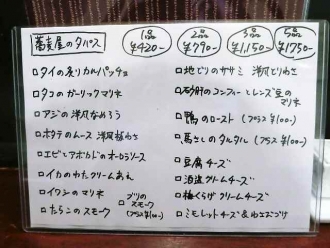 蕎麦屋のタパス
1品 ¥420-
2品 ¥790-
3品 ¥1,150-
5品 ¥1750-
□タイの炙りカルパッチョ
□タコのガーリックマリネ
□アジの洋風なめろう
□ホタテのムース 洋風板わさ
□エビとアボカドのオーロラソース
□イカのわたクリームあえ
□イワシのマリネ
□たらこのスモーク
□ブリのスモーク
(プラス¥100-)
□地どりのササミ 洋風どりわさ
□砂肝のコンフィーとレンズ豆の
マリネ
□鴨のロースト (プラス¥100-)
□馬さしのタルタル (プラス¥100-)
□豆腐チーズ
□酒盗クリームチーズ
□梅くらげクリームチーズ
□ミモレットチーズ&わさびづけ